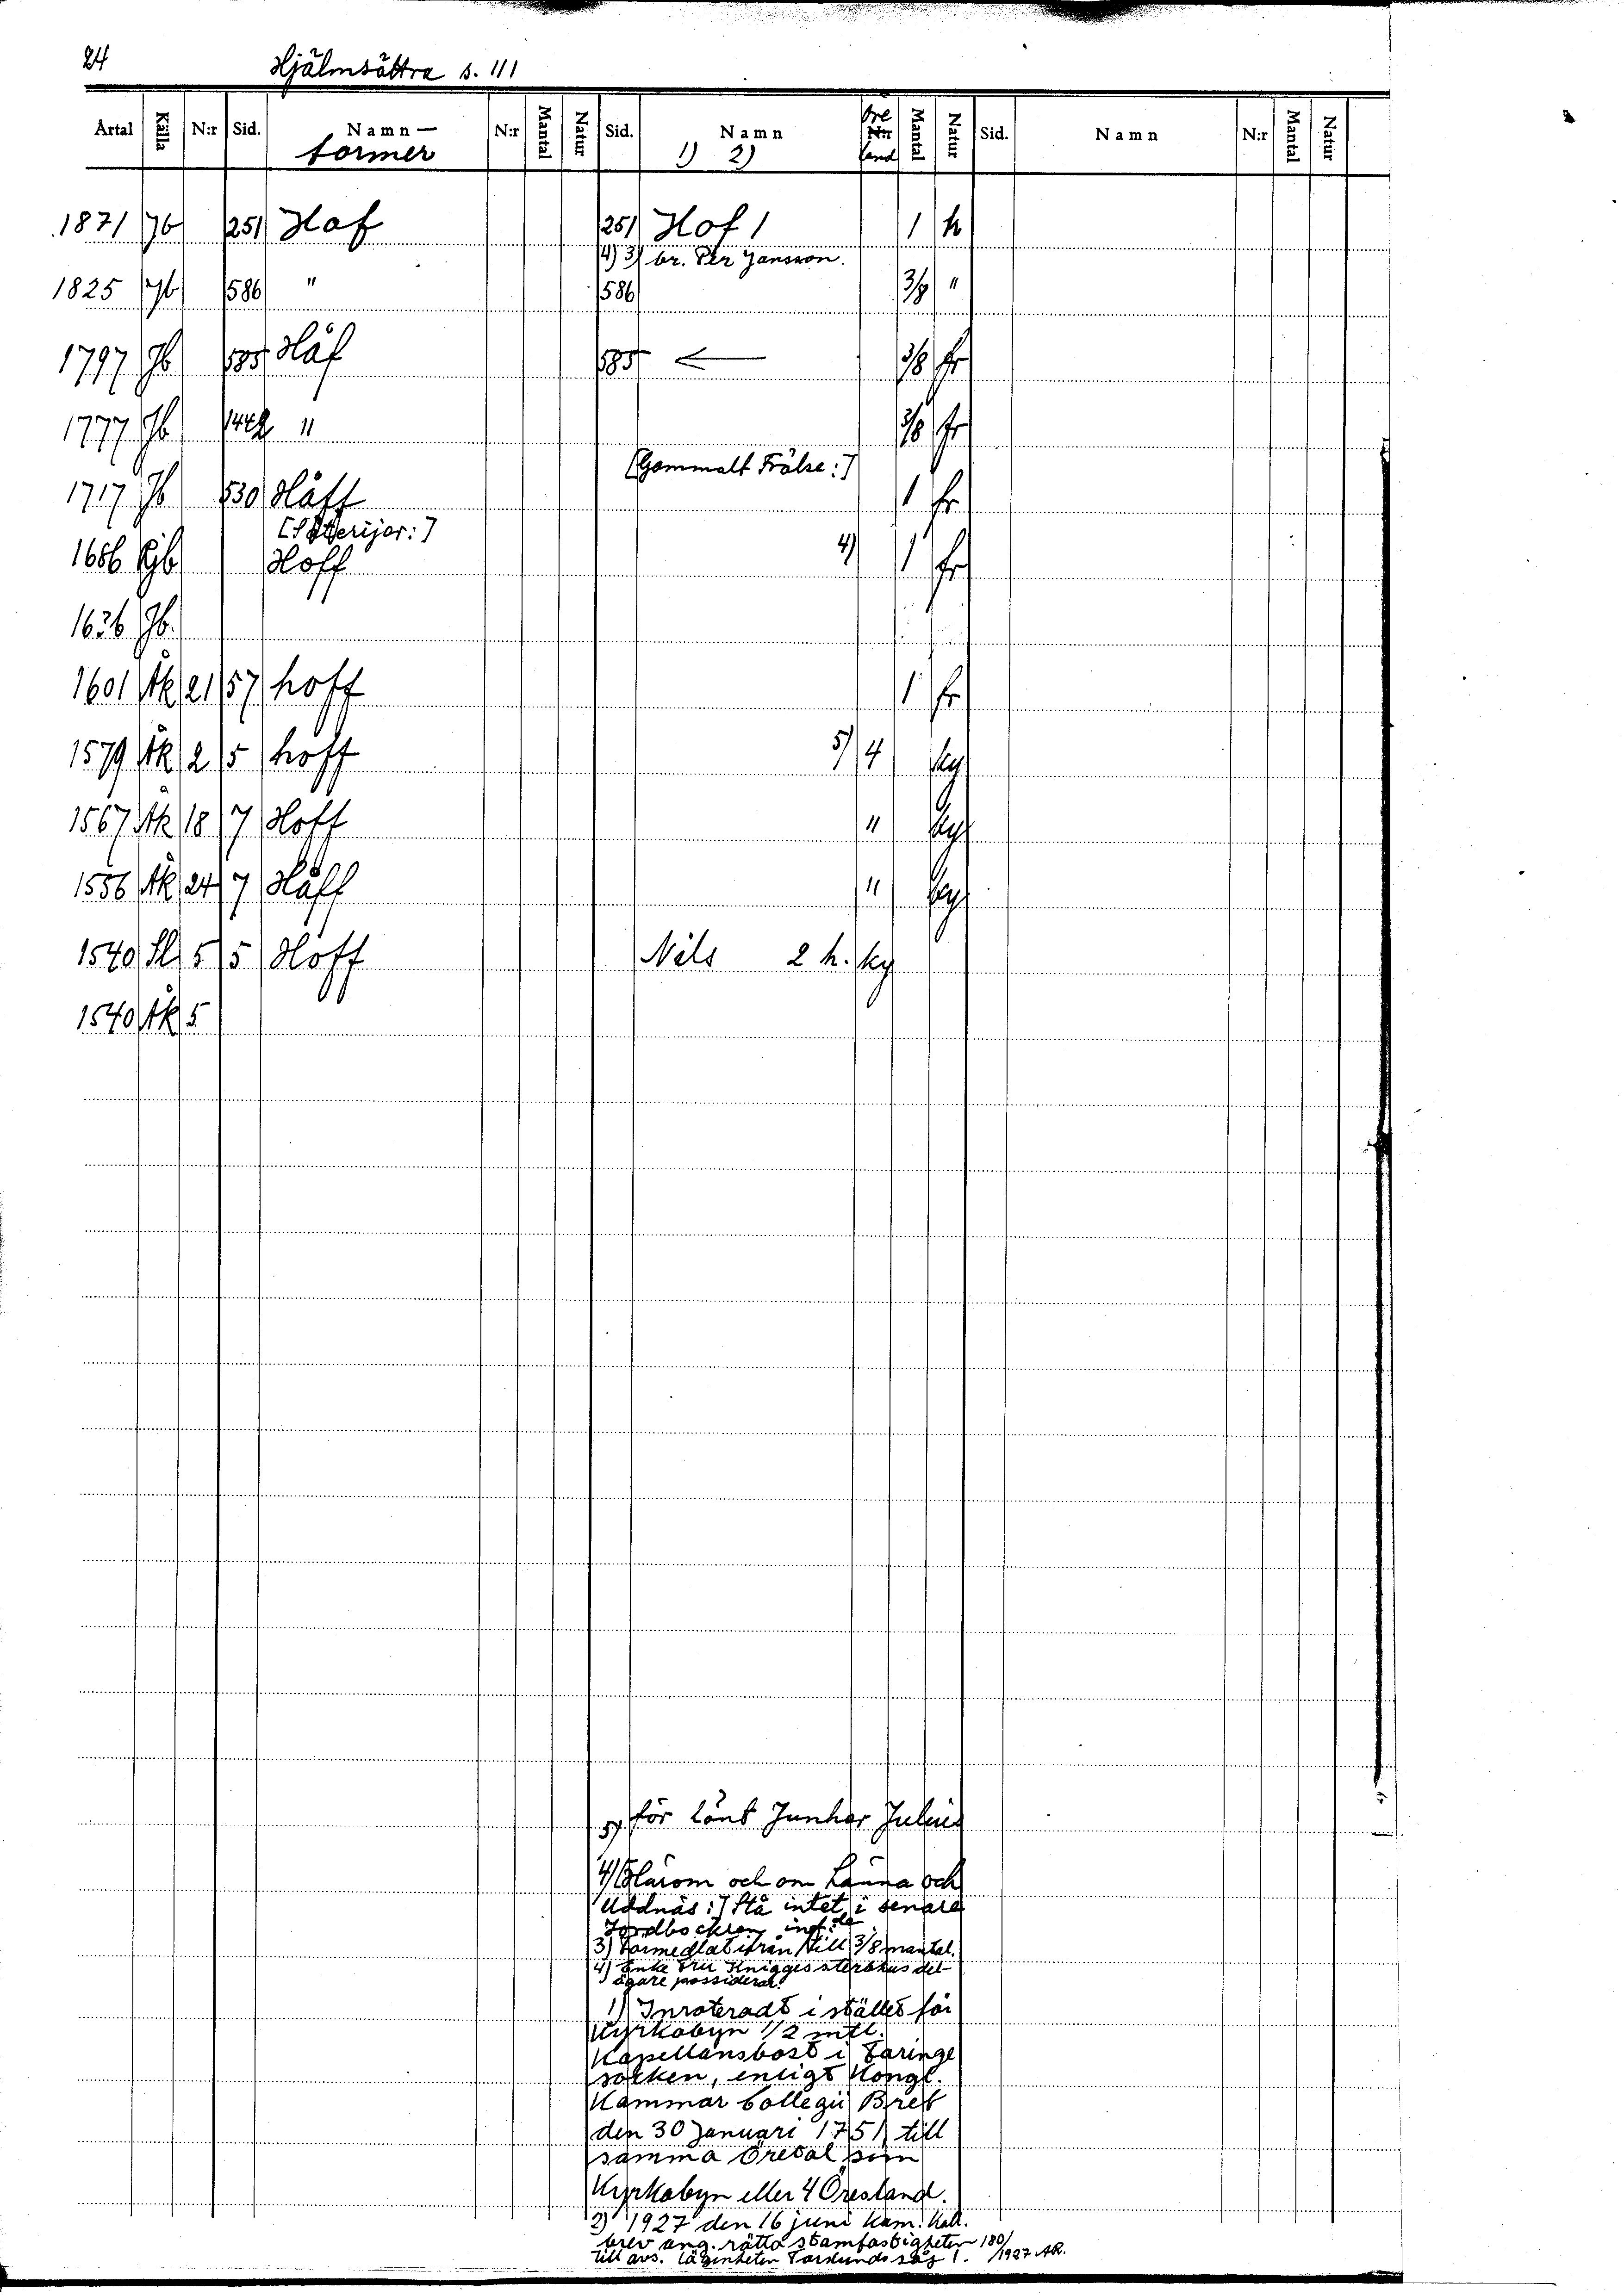 24 Hjälmsättra s. 111
Artal Källa N:r Sid. Namn— N:r Mantal Natur Sid. Namn Öre N:r Mantal Natur Sid. Namn N:r Mantal Natur
former 1) 2) land
1871 Jb 251 Haf 251 Hof 1 1 h
4) 3) br. Per Jansson.
1825 Jb 586 " 586 3/8 "
1797 Jb 585 Håf 585 3/8 fr
1777 Jb " 3/8 fr
[Gammalt Frälse:]
1717 Jb 830 Håff 1 fr
[Sätterijer:]
1686 Jb Hoff 4) 1 fr
1636 Jb.
1601 Äk 21 57 hoff 1 fr
1579 Äk 2 5 hoff 5) 4 ky
1567 Äk 18 7 Hoff " ky
1556 Äk 24 7 Håff " ky
1540 Sl 5 5 Hoff Nils 2 h. ky
1540 Äk 5
5) för länt Junker Julius
4) [Härom och om Länna och
Uddnäs:] Stå intet i senare
Jordböcker
3) Förmedlat ifrån 1 till 3/8 mantal.
4) Enke Fru Knigges sterbhus del-
ägare possiderar.
1) Inroteradt i stället för
Kyrkobyn 1/2 mtl.
Kapellansbost i Taringe
socken, enligt Kongl.
Kammar Collegii Bref
den 30 Januari 1751, till
samma Öretal som
Kyrkobyn eller 4 Öresland.
2) 1927 den 16 juni Kam. Koll.
brev ang. rätta stamfastigheten 180/
till avs. lägenheten Torslunds såg 1. /1927 AR.